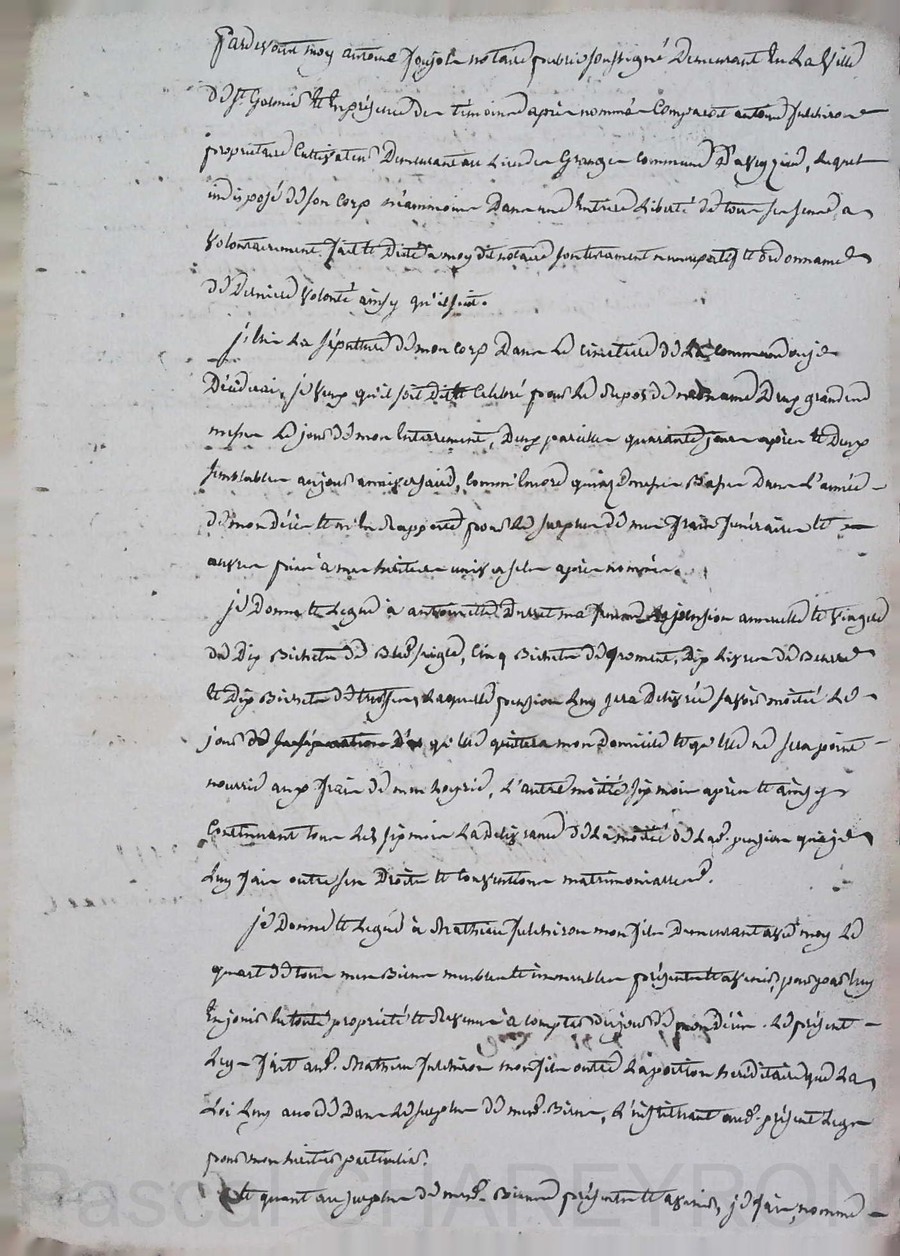 Pardevant moy antoine notaire public soussigné Demeurant En La Ville
De St Galmier Et En présence des temoins après nommés Comparut antoine fulchiron
propriétaire Cultivateur Demeurant au Lieu des Granges Commune D'aveyzieu, Lequel
indisposé de son Corp néammoins Dans une Entiere Liberté de tous ses sens, a
Volontairement fait Et Dicté a moy dit notaire son testament nuncupatif et ordonnance
de Derniere Volonté ainsy qu'il suit.
j'élis La sépulture de mon Corp Dans Le cimetiere de La Commune ou je
Décéderai, je Veux qu'il soit Célébré pour Le Repos de mon ame Deux grandes
messes Le jour de mon Enterrement, Deux pareilles quarante jours après Et Deux
semblables au jour anniversaire, Comm'Encore quinze messes Basses Dans L'année
de mon décès Et m'En Rapporte pour Le surplus de mes frais funéraires Et
œuvres pies à mes héritiers universels après nommés.
je Donne Et Legue à antoinette ma femme pension annuelle Et Viagere
de Dix Bichets de Bled seigle, Cinq Bichets de froment, Dix Livres de Beurre
Et Dix Bichets de truffes, Laquelle pension Luy sera Delivrée savoir moitié Le
jour qu'elle quittera mon Domicile Et qu'elle ne sera point
nourrie aux frais de mon hoyrie, L'autre moitié six mois après Et ainsy
Continuant tous Les six mois La delivrance de La moitié de Lad. pension que je
Luy fais outre ses Droits Et Conventions matrimoniales.
je Donne Et Legue à Mathieu fulchiron mon fils Demeurant avec moy Le
quart de tous mes Biens meubles Et immeubles présents Et avenir, pour par Luy
En jouir En toute propriété Et Revenus à compter du jour de mon décès. Le présent
Legs fait aud. Mathieu fulchiron mon fils outre La portion héréditaire que La
Loi Luy accorde Dans Le surplus de mesd. Biens, L'instituant aud. présent Legs
pour mon héritier particulier.
Et quant au surplus de mesd. Biens présents Et avenir, je fais, nomme